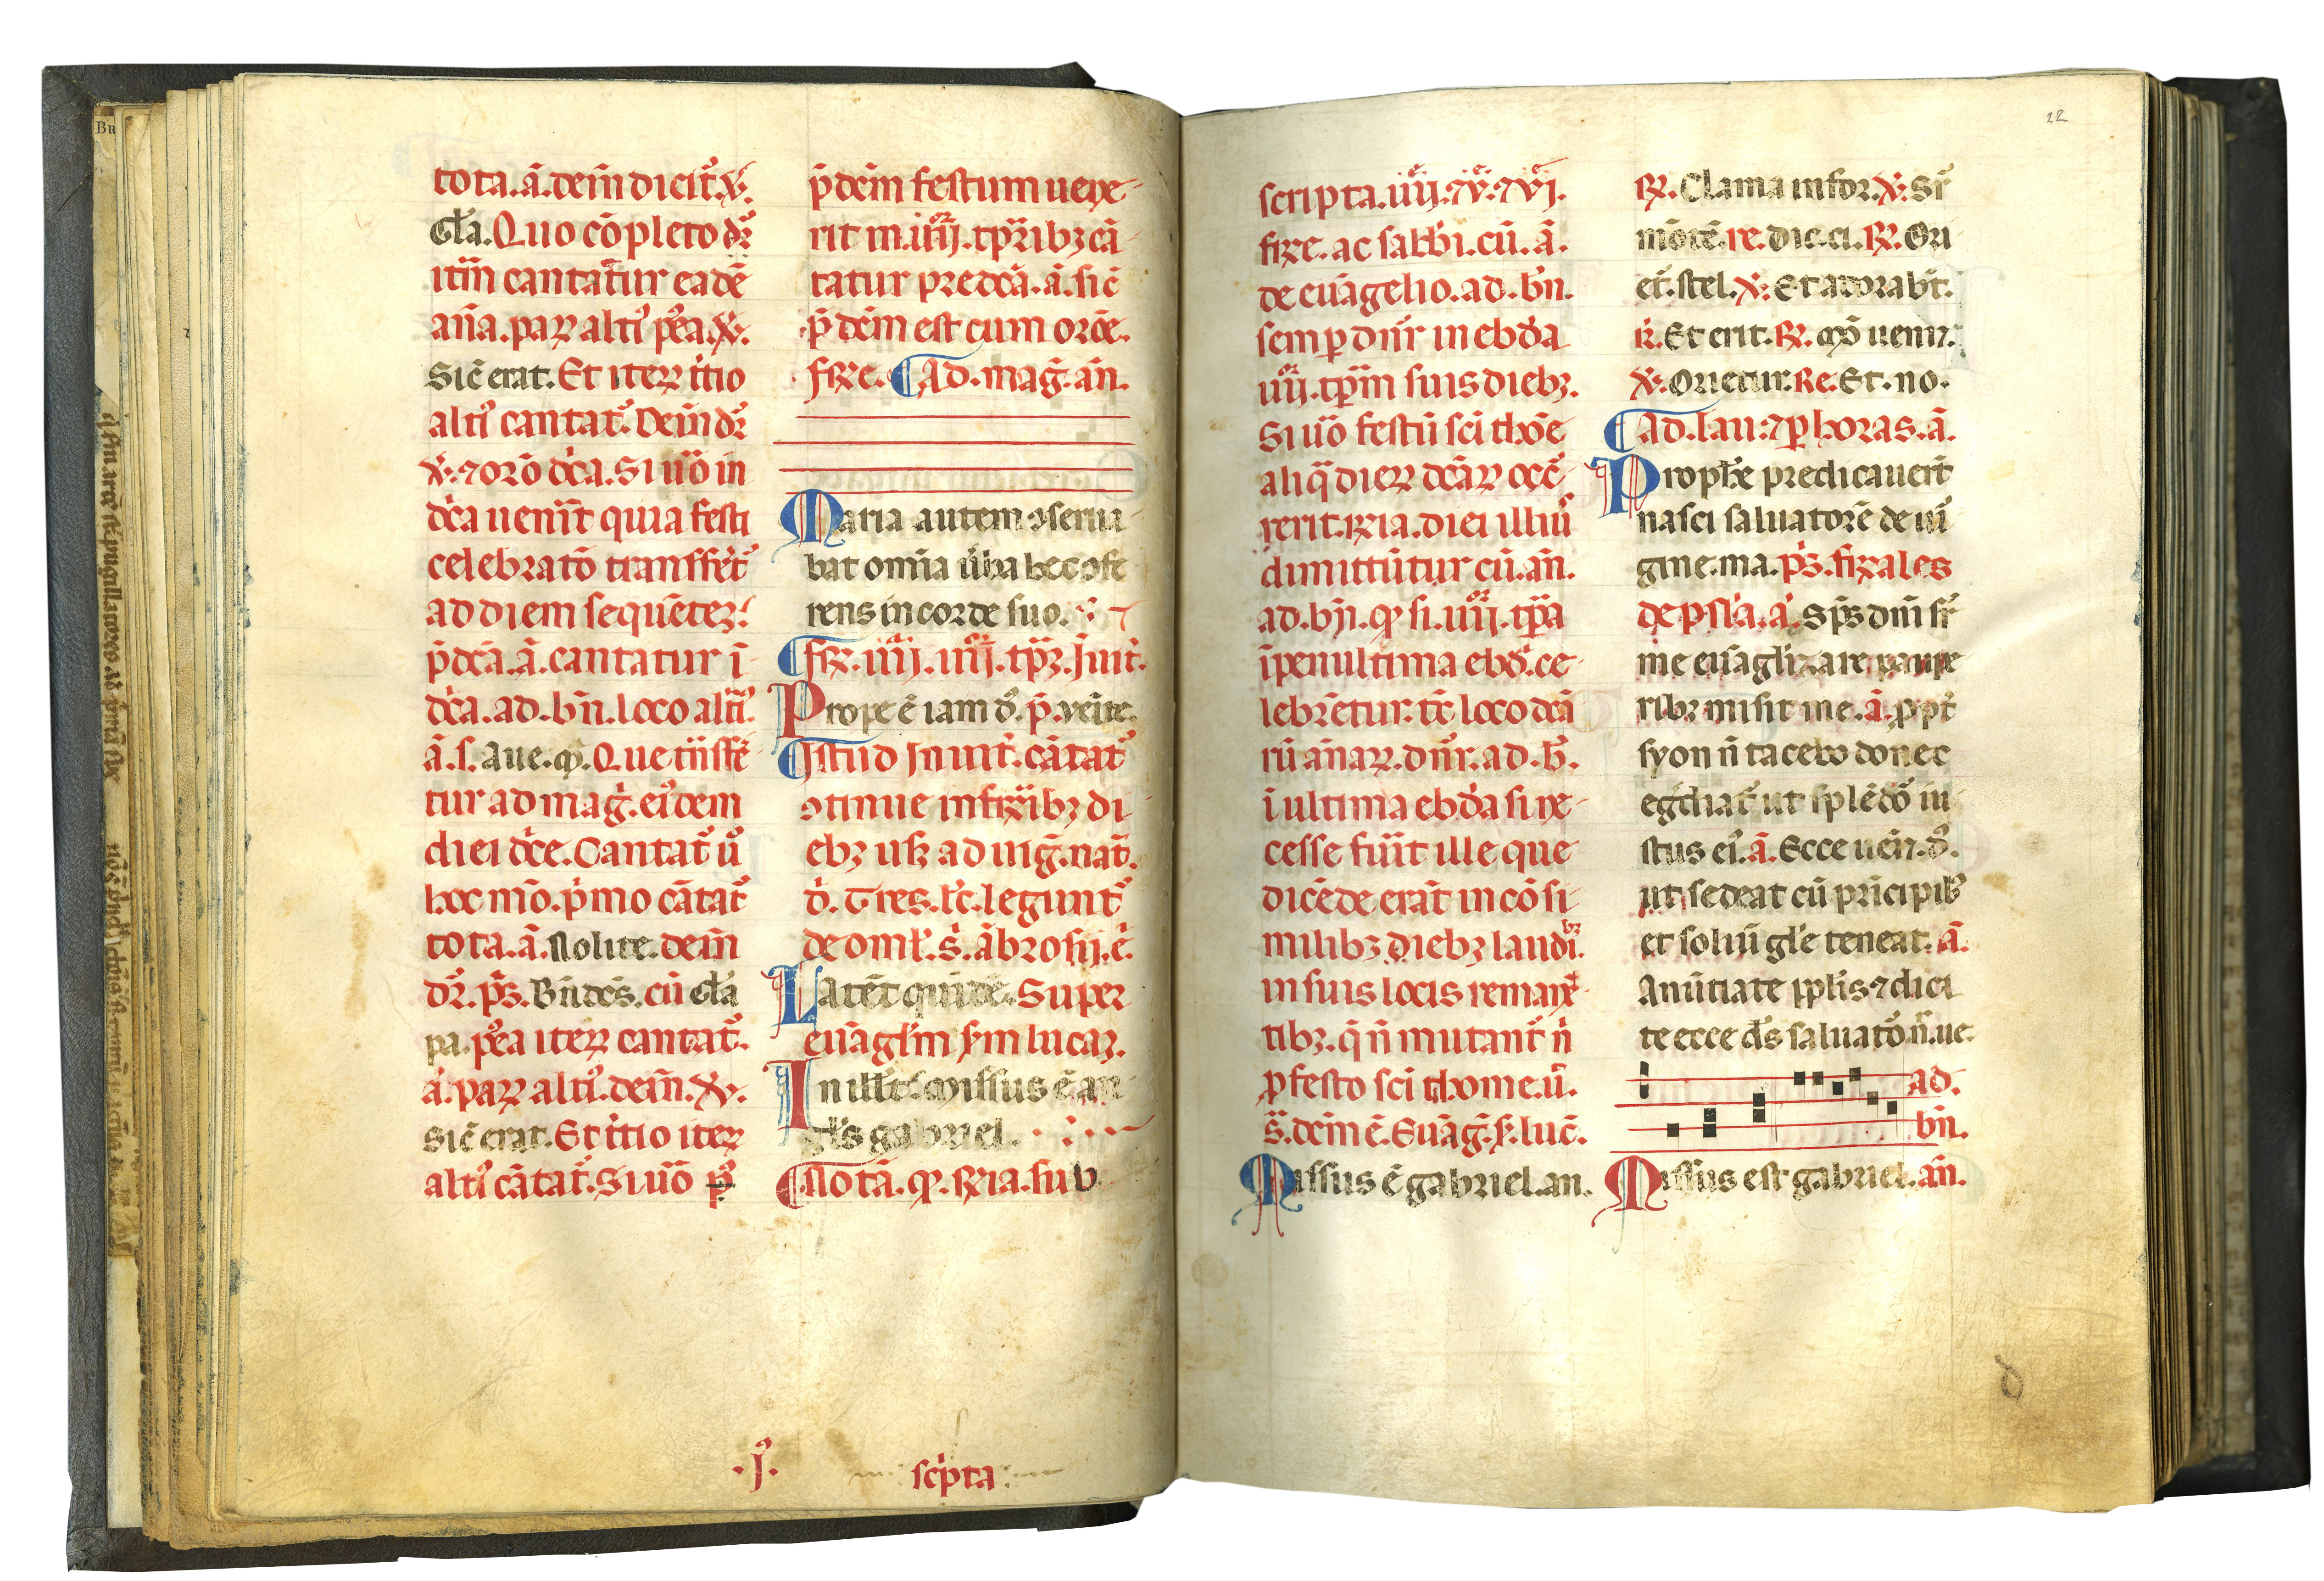 tota.ā.dem̄ dicit᷑.℣.
Gl̄a.Quo cōpleto dr̄
itm̄ cantat᷑ur eadē
an̄a.paꝝ alti᷒ p᷒ea.℣.
Sic̄ erat.Et iteꝝ it̾io
alti᷒ cantat᷑.Dein̄ dr̄
℣.⁊ orō dc̄a.Si uo̾ in
dc̄a uenīt quia festū
celebratō transffert᷑
ad diem sequēteꝫ.
p̄dc̄a.ā.cantatur ī
dc̄a.ad.bn̄.loco alti᷒.
ā.s.Aue.m̄.Que tn̄sfer
tur ad maḡ.eiꝰdem
diei dc̄e.Cantat᷑ u᷒
hoc mō.p̾mo cātat᷑
tota.ā.Nolite.dein̄
dr̄.ps̄.Bn̄dc̄s.cū Gl̄a
pa.p᷒ea iteꝝ cantat᷑.
ā.paꝝ alti᷒.dein̄.℣.
Sic̄ erat.Et it̾io iteꝝ
alti᷒ cātat᷑.Si uo̾ p᷒
p̄dcm̄ festum uene
rit in.iiij.tp̄ribꝫ cā
tatur predc̄a.ā.sic̄
p̄dcm̄ est cum orōe.
frie.Ad.maḡ.an̄.
Maria autem ꝯserua
bat omīa u̾ba hec ꝯfe
rens in corde suo.
fr̄.iiij.iiij.tp̄ꝝ.Juit̄.
Prope ē iam d᷒.p̄.venite.
Istud Inuit̄.cātat᷑
ꝯtinue in frībꝫ di
ebꝫ usꝫ ad uiḡ.nat̄.
d̄.Tres.lc̄.legunt᷑
de oml̄.s̄.ābrosij.ē.
Latēt quidē.Super
euāgl̄m sm̄ lucaꝫ.
In illo t̄.Missus ē an
gl̄s gabriel.
Notā.ꝙ.R̄ia.sub
.J.
sc̾pta
scripta.iiij.⁊v.⁊vj.
frie.ac sabb̄i.cū.ā.
de euāgelio.ad.bn̄.
semp dn̄r in ebd̄a
iiij.tp̄m suis diebꝫ.
Si uo̾ festū sc̄i thōe
aliq̄ dieꝝ dc̄aꝝ occ̄
rerit.r̄ia.diei illiuꝰ
dimittūtur cū.an̄.
ad.bn̄.ꝙ si.iiij.tp̄a
ī penultima ebd̄.ce
lebrētur.tc̄ loco dc̄a
rū an̄aꝝ.dn̄r.ad.b̄.
ī ultima ebd̄a si ne
cesse fūit ille que
dicēde erāt in cōsi
milibꝫ diebꝫ laudibꝫ
in suis locis remanē
tibꝫ.q̄ n̄ mutant᷑ n̄
p festo sc̄i thome.u̾.
s̄.dcm̄ ē.Euāḡ.s̄.luc̄.
Missus ē gabriel.an.
22
℟.Clama in for.℣.Sr̄
mōtē.re.dic.ci.℟.Ori
et̄.stel.℣.Et adorabt̄.
k̄.Et erit.℟.Mō ueni⁊.
℣.Orietur.Re.Et.no.
Ad.lau:⁊ꝑ horas.ā.
Prophe predicauerūt
nasci saluatorē de uir̾
gine.ma.ps̄.friales
de psl̄a.ā.Sps̄ dnī sr̄
me euāglizare paupe
ribꝫ misit me.ā.ppt̄
syon n̄ tacebo donec
eg̾diat᷑ ut splēdō iu
stus ei᷒.ā.Ecce uen̄⁊.d᷒.
ut sedeat cū principib᷒
et soliū gl̄e teneat.ā.
Anūtiate ppl̄is ⁊ dici
te ecce ds̄ saluatō.n̄.ue.
ad.
bn̄.
Missus est gabriel.an̄.
d